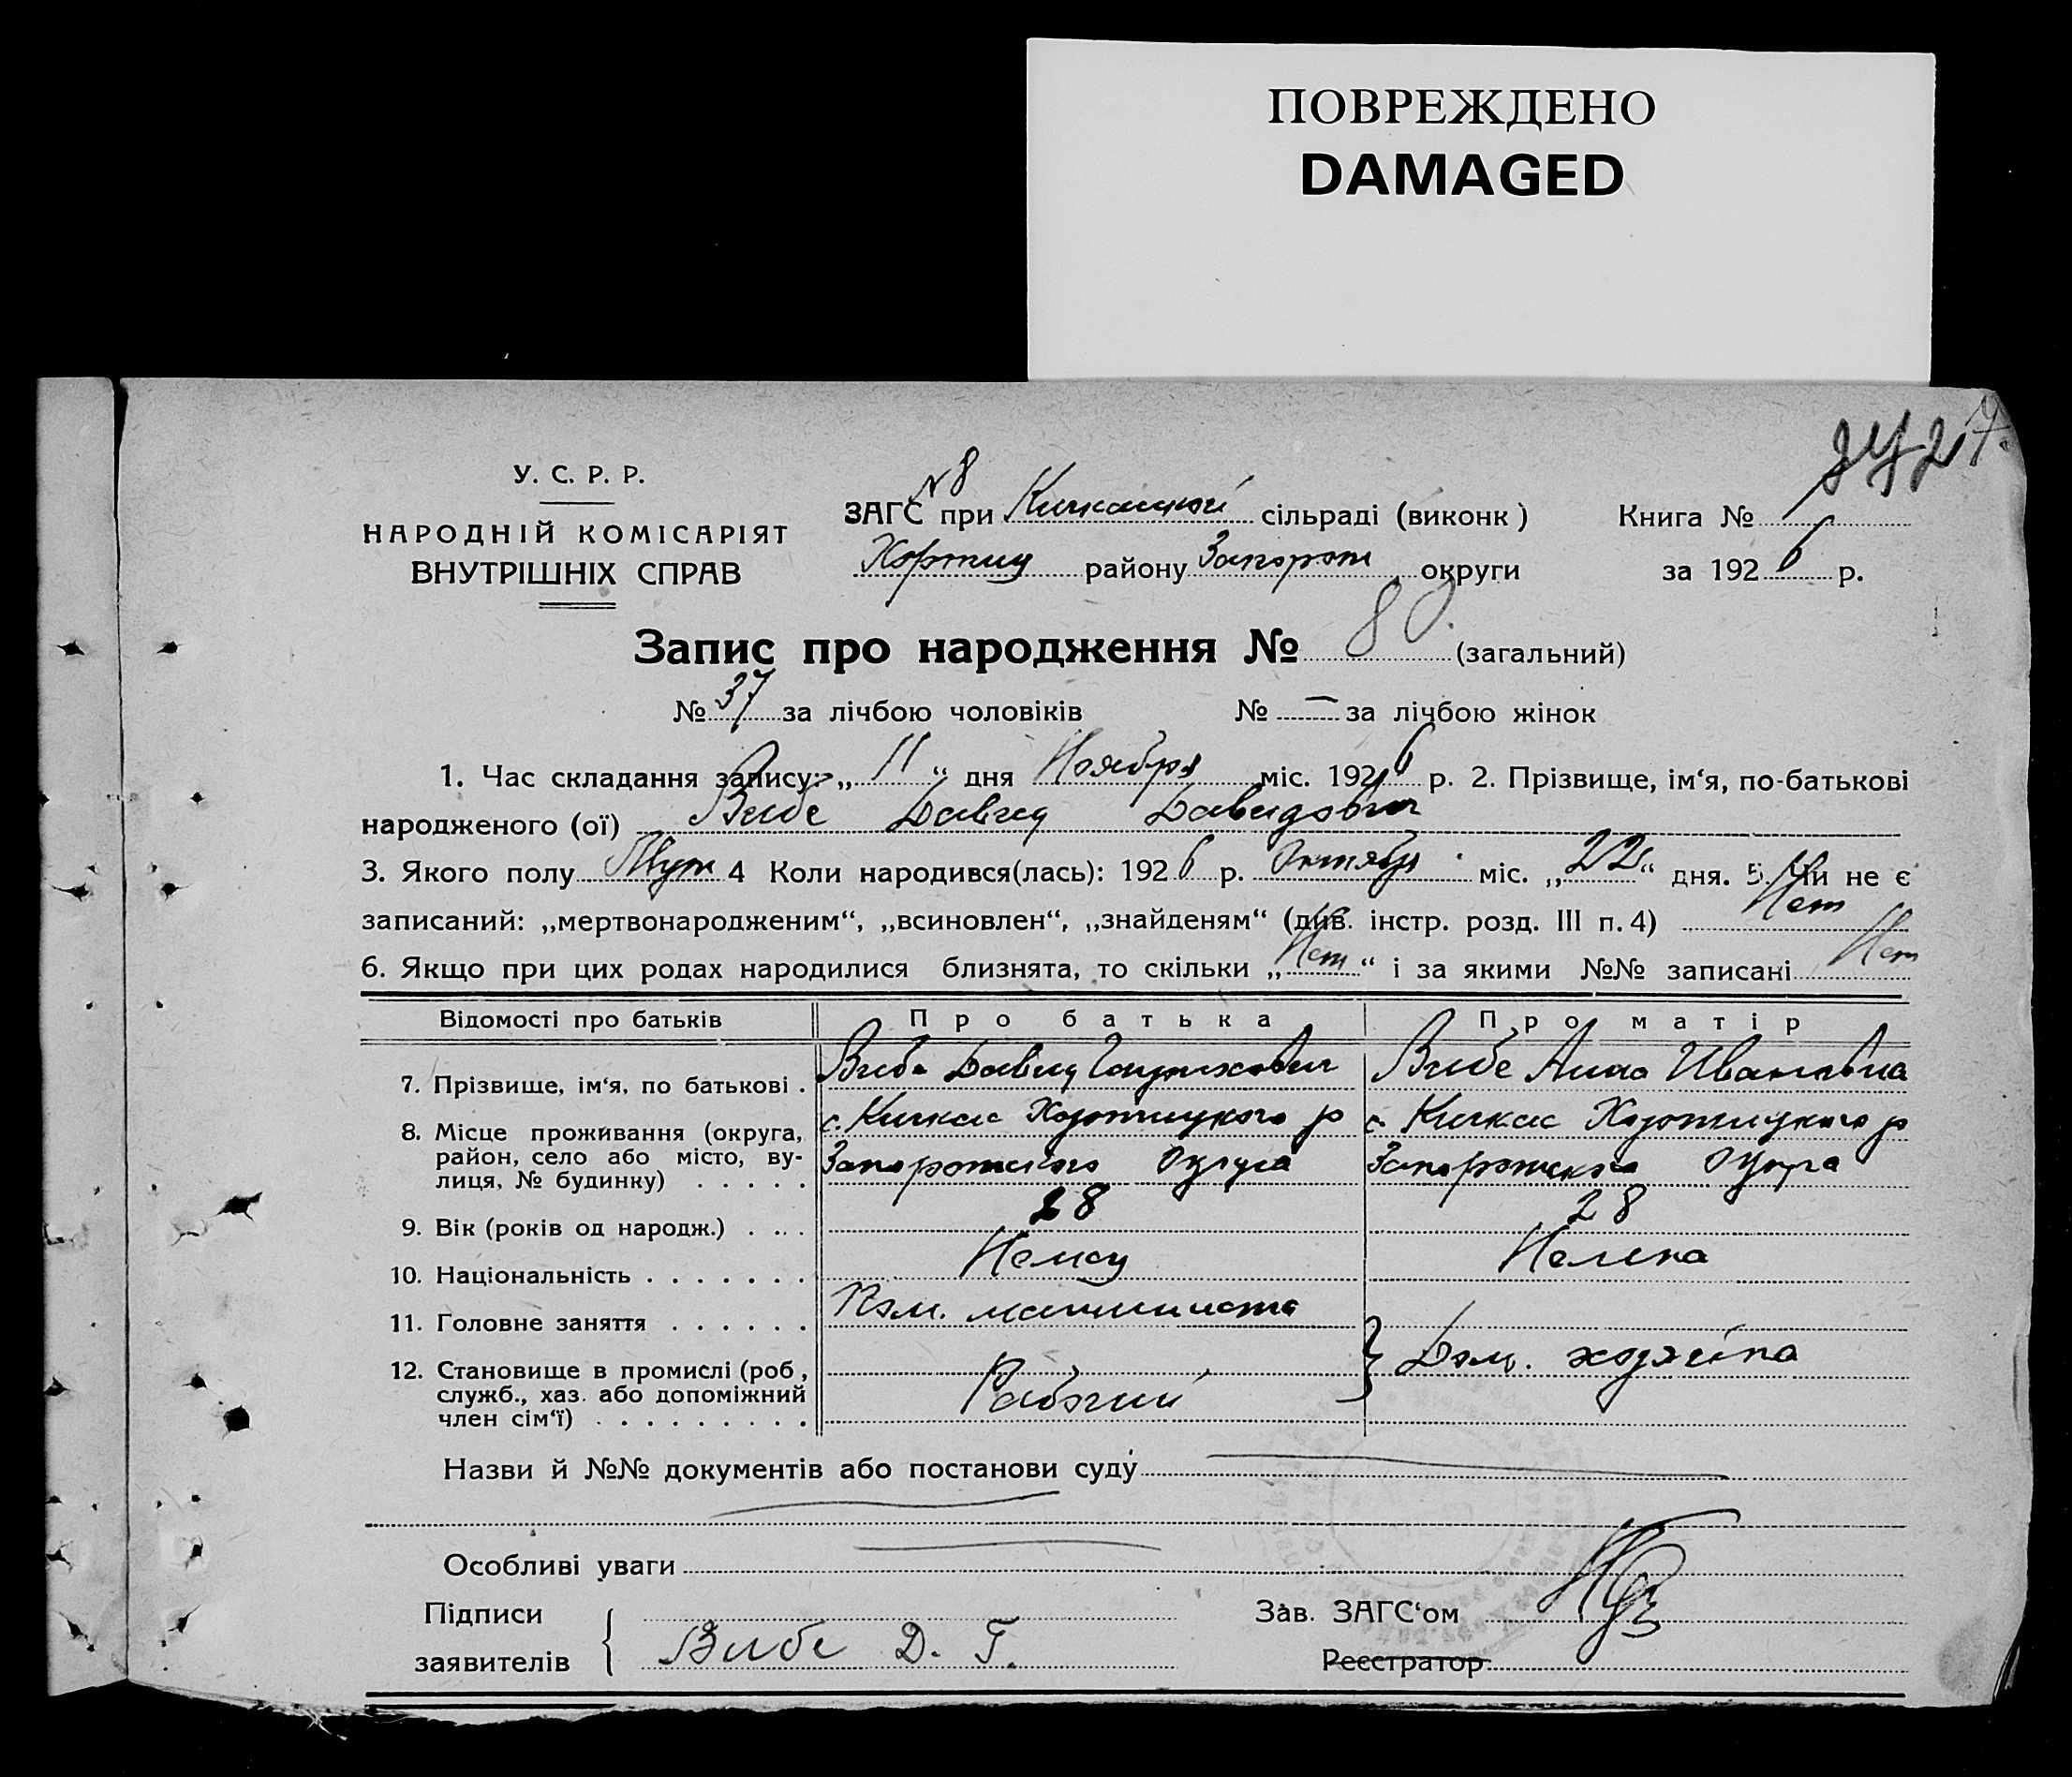 ПОВРЕЖДЕНО
DAMAGED
У. С. Р. Р.
НАРОДНІЙ КОМІСАРІЯТ
ВНУТРІШНІХ СПРАВ
№ 8
ЗАГС при Кичкаській сільраді (виконк )
Хортиц району Запорож округи
Книга №
за 1926 р.
Запис про народження № 80. (загальний)
№ 37 за лічбою чоловіків № — за лічбою жінок
1. Час складання запису: „ 11 “ дня Ноября міс. 1926 р. 2. Прізвище, ім‘я, по-батькові
народженого (ої) Вибе Давид Давидович
3. Якого полу Муж 4 Коли народився(лась): 1926 р. Октябр міс. „ 22 “ дня. 5. Чи не є
записаний: „мертвонародженим“, „всиновлен“, „знайденям“ (див. інстр. розд. III п. 4) Нет
6. Якщо при цих родах народилися близнята, то скільки „ Нет “ і за якими №№ записані Нет
Відомості про батьків Про батька Про матір
7. Прізвище, ім‘я, по батькові . Вибе Давид Гендрихович Вибе Анна Ивановна
8. Місце проживання (округа, с. Кичкас Хортицкого р с. Кичкас Хортицкого р
район, село або місто, ву- Запорожского Округа Запорожского Округа
лиця, № будинку) . . . . .
9. Вік (років од народж.) . . . . 28 28
10. Національність . . . . . . . Немец Немка
11. Головне заняття . . . . . . Пом. машиниста
12. Становище в промислі (роб , Рабочий } Дом. хозяйка
служб., хаз. або допоміжний
член сім‘ї) . . . . . . . . .
Назви й №№ документів або постанови суду
Особливі уваги
Підписи
заявителів { Вибе Д. Г.
Зав. ЗАГС‘ом
Реєстратор